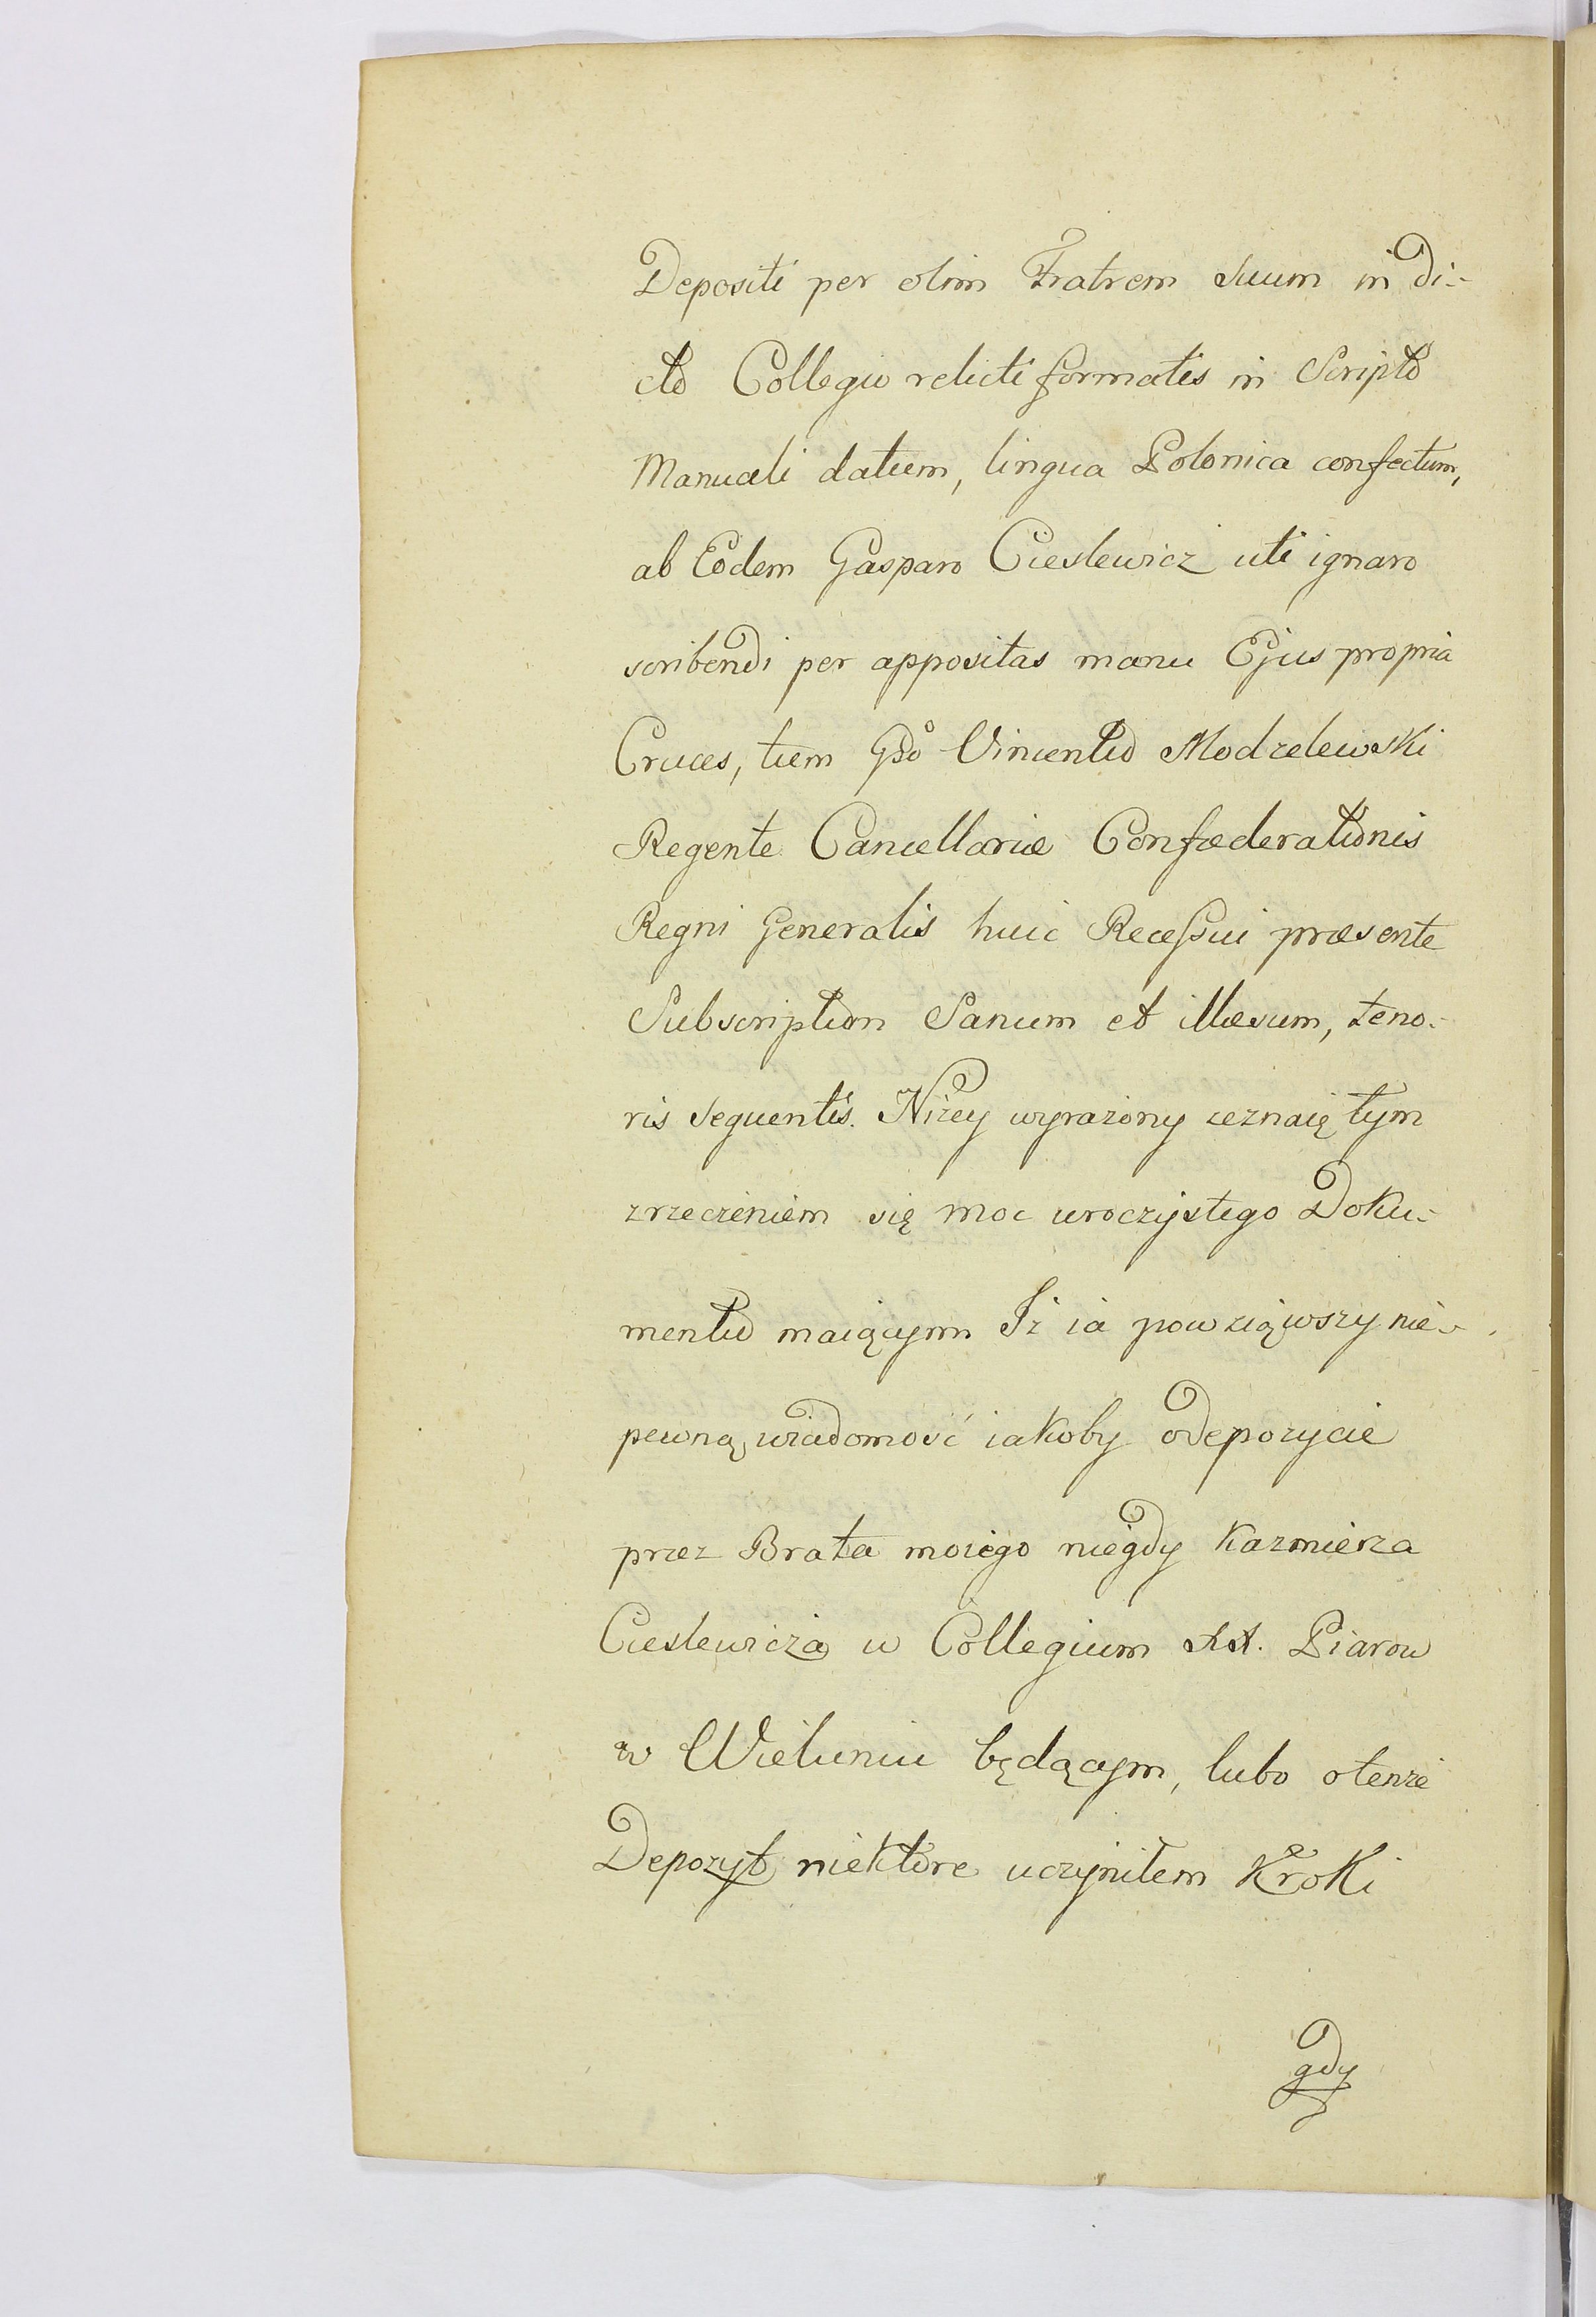 Depositi per olim Fratrem Suum in di-
cto Collegio relicti formatis in Scripto
Manuali datum, lingua Polonica confectum,
ab Eodem Gasparo Cieslewicz uti ignaro
scribendi per appositas manu Ejus propria
Cruces, tum Gso Vincentio Modzelewski
Regente Cancellariæ Confæderationis
Regni Generalis huic Recessui præsente
Subscription Sanum et illæsum, teno-
ris sequentis. Niżey wyrażony zeznaię tym
zrzeczeniem się moc uroczystego Doku-
mentu maiącym Iż ia powziąwszy nie-
pewną wiadomość iakoby o depozycie
przez Brata moiego niegdy Kazmierza
Cieslewicza w Collegium XX. Piarow
w Wieluniu będącym, lubo o tenże
Depozyt niektore uczyniłem Kroki
gdy